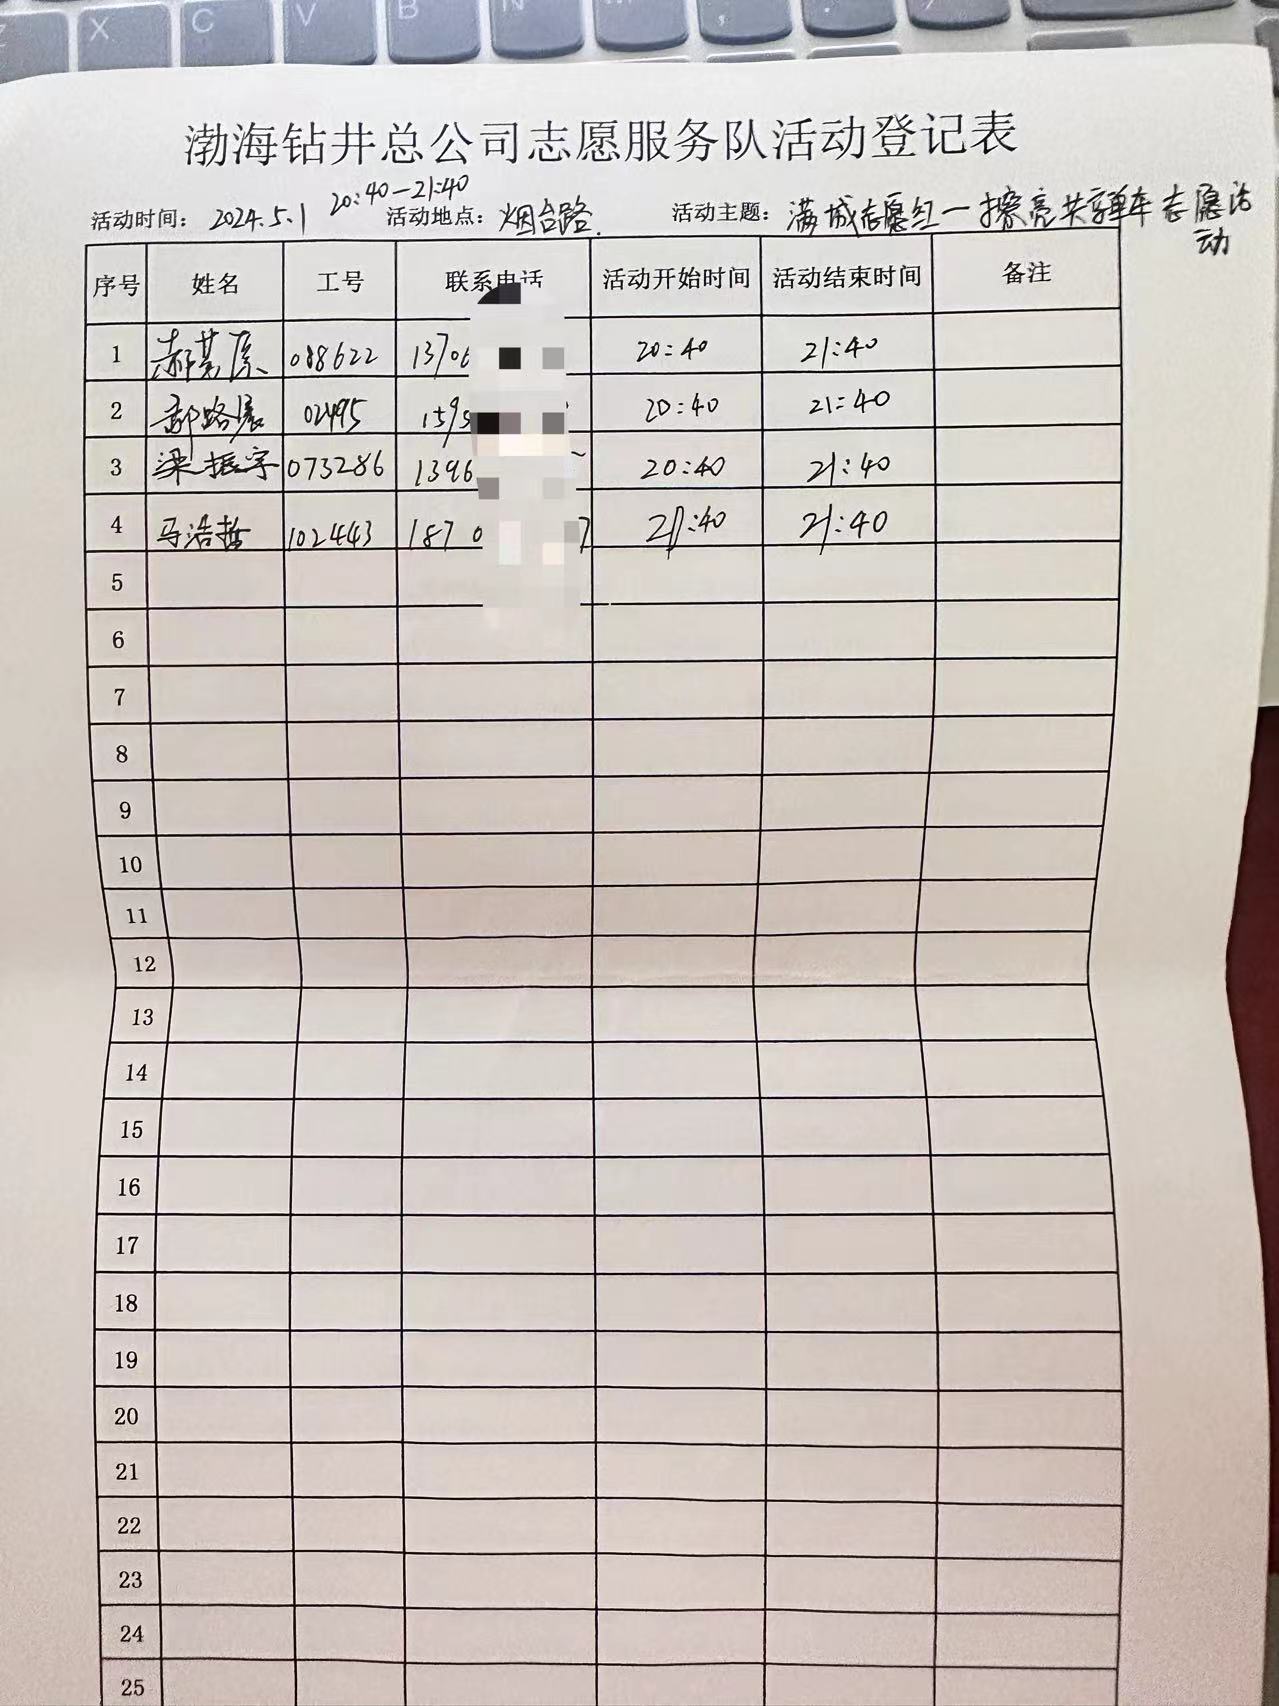 Z X C V B N M
渤海钻井总公司志愿服务队活动登记表
20:40-21:40
活动时间: 2024.5.1 活动地点: 烟台路. 活动主题: 满城志愿红一擦亮共享单车志愿活动
序号 姓名 工号 联系电话 活动开始时间 活动结束时间 备注
1 088622 1370 20:40 21:40
2 02495 159 20:40 21:40
3 梁振宇 073286 1396 20:40 21:40
4 马浩哲 102443 1870 7 :40 21:40
5
6
7
8
9
10
11
12
13
14
15
16
17
18
19
20
21
22
23
24
25